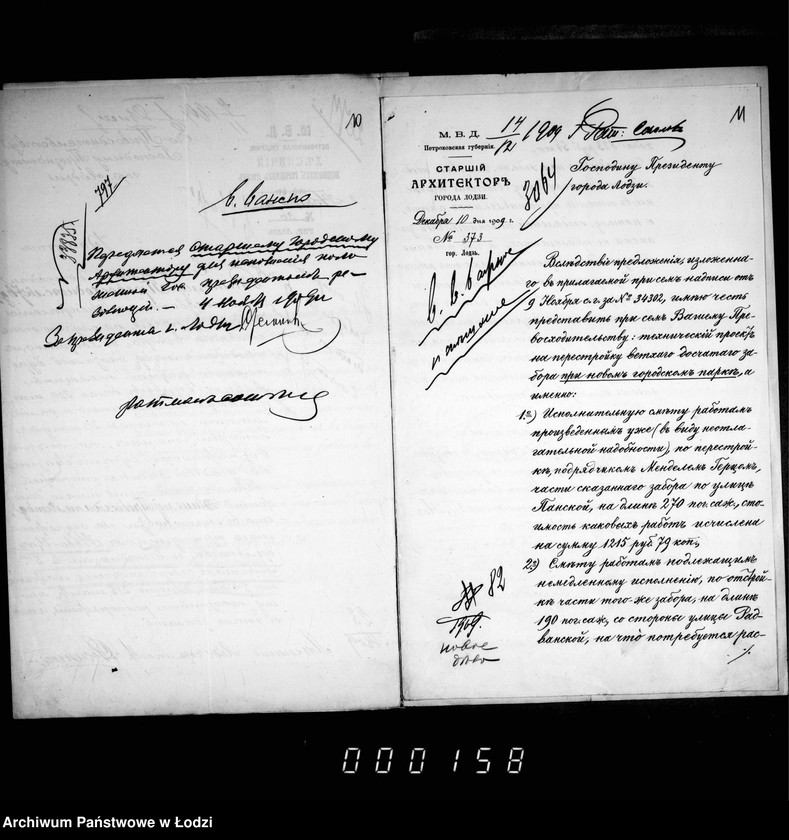 10
797
33835
Передается Старшему Городскому
Архитектору для исполнения
резолюцiи. — 4 Ноября 1909 г.
11
М. В. Д.
Петроковская губернія.
СТАРШІЙ
АРХИТЕКТОРЪ
ГОРОДА ЛОДЗИ.
Декабря 10 дня 1909 г.
№ 373
гор. Лодзь.
14/12 1909 г.
3064
Господину Президенту
города Лодзи.
Вслѣдствіе предложенія, изложенна-
го въ прилагаемой при семъ надписи отъ
9 Ноября с. г. за № 34302, имѣю честь
представить при семъ Вашему Пре-
восходительству: техническій проектъ
на перестройку ветхаго досчатаго за-
бора при новомъ городскомъ паркѣ, а
именно:
1.) Исполнительную смѣту работамъ
произведеннымъ уже (въ виду неотла-
гательной надобности), по перестрой-
кѣ, подрядчикомъ Менделемъ Герцемъ,
части сказаннаго забора по улицѣ
Панской, на длинѣ 270 пог. саж., сто-
имость каковыхъ работъ исчислена
на сумму 1215 руб. 79 коп.;
2.) Смѣту работамъ подлежащимъ
немедленному исполненію, по отстрой-
кѣ части того-же забора, на длинѣ
190 пог. саж., со стороны улицы Рад-
ванской, на что потребуется рас-
·/·
82
1909.
новое
дѣло
000158
Archiwum Państwowe w Łodzi